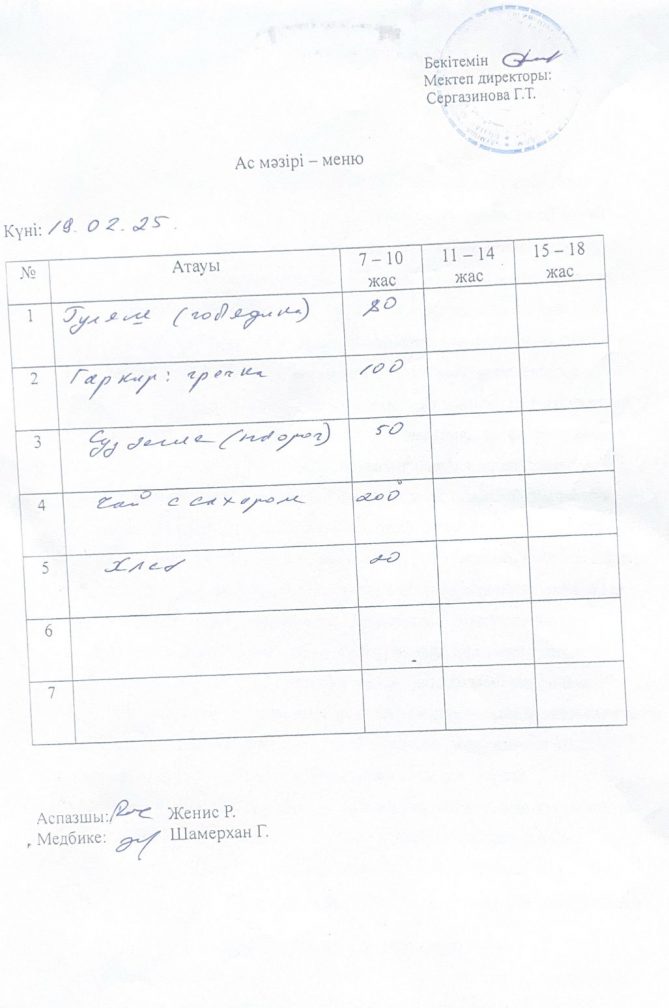 Бекітемін
Мектеп директоры:
Сергазинова Г.Т.
Ас мәзірі – меню
Күні: 19.02.25.
№ Атауы 7 – 10 жас 11 – 14 жас 15 – 18 жас
1 Гуляш (говядина) 80
2 Гарнир: гречка 100
3 (творог) 50
4 Чай с сахаром 200
5 Хлеб 20
6
7
Аспазшы: Женис Р.
Медбике: Шамерхан Г.